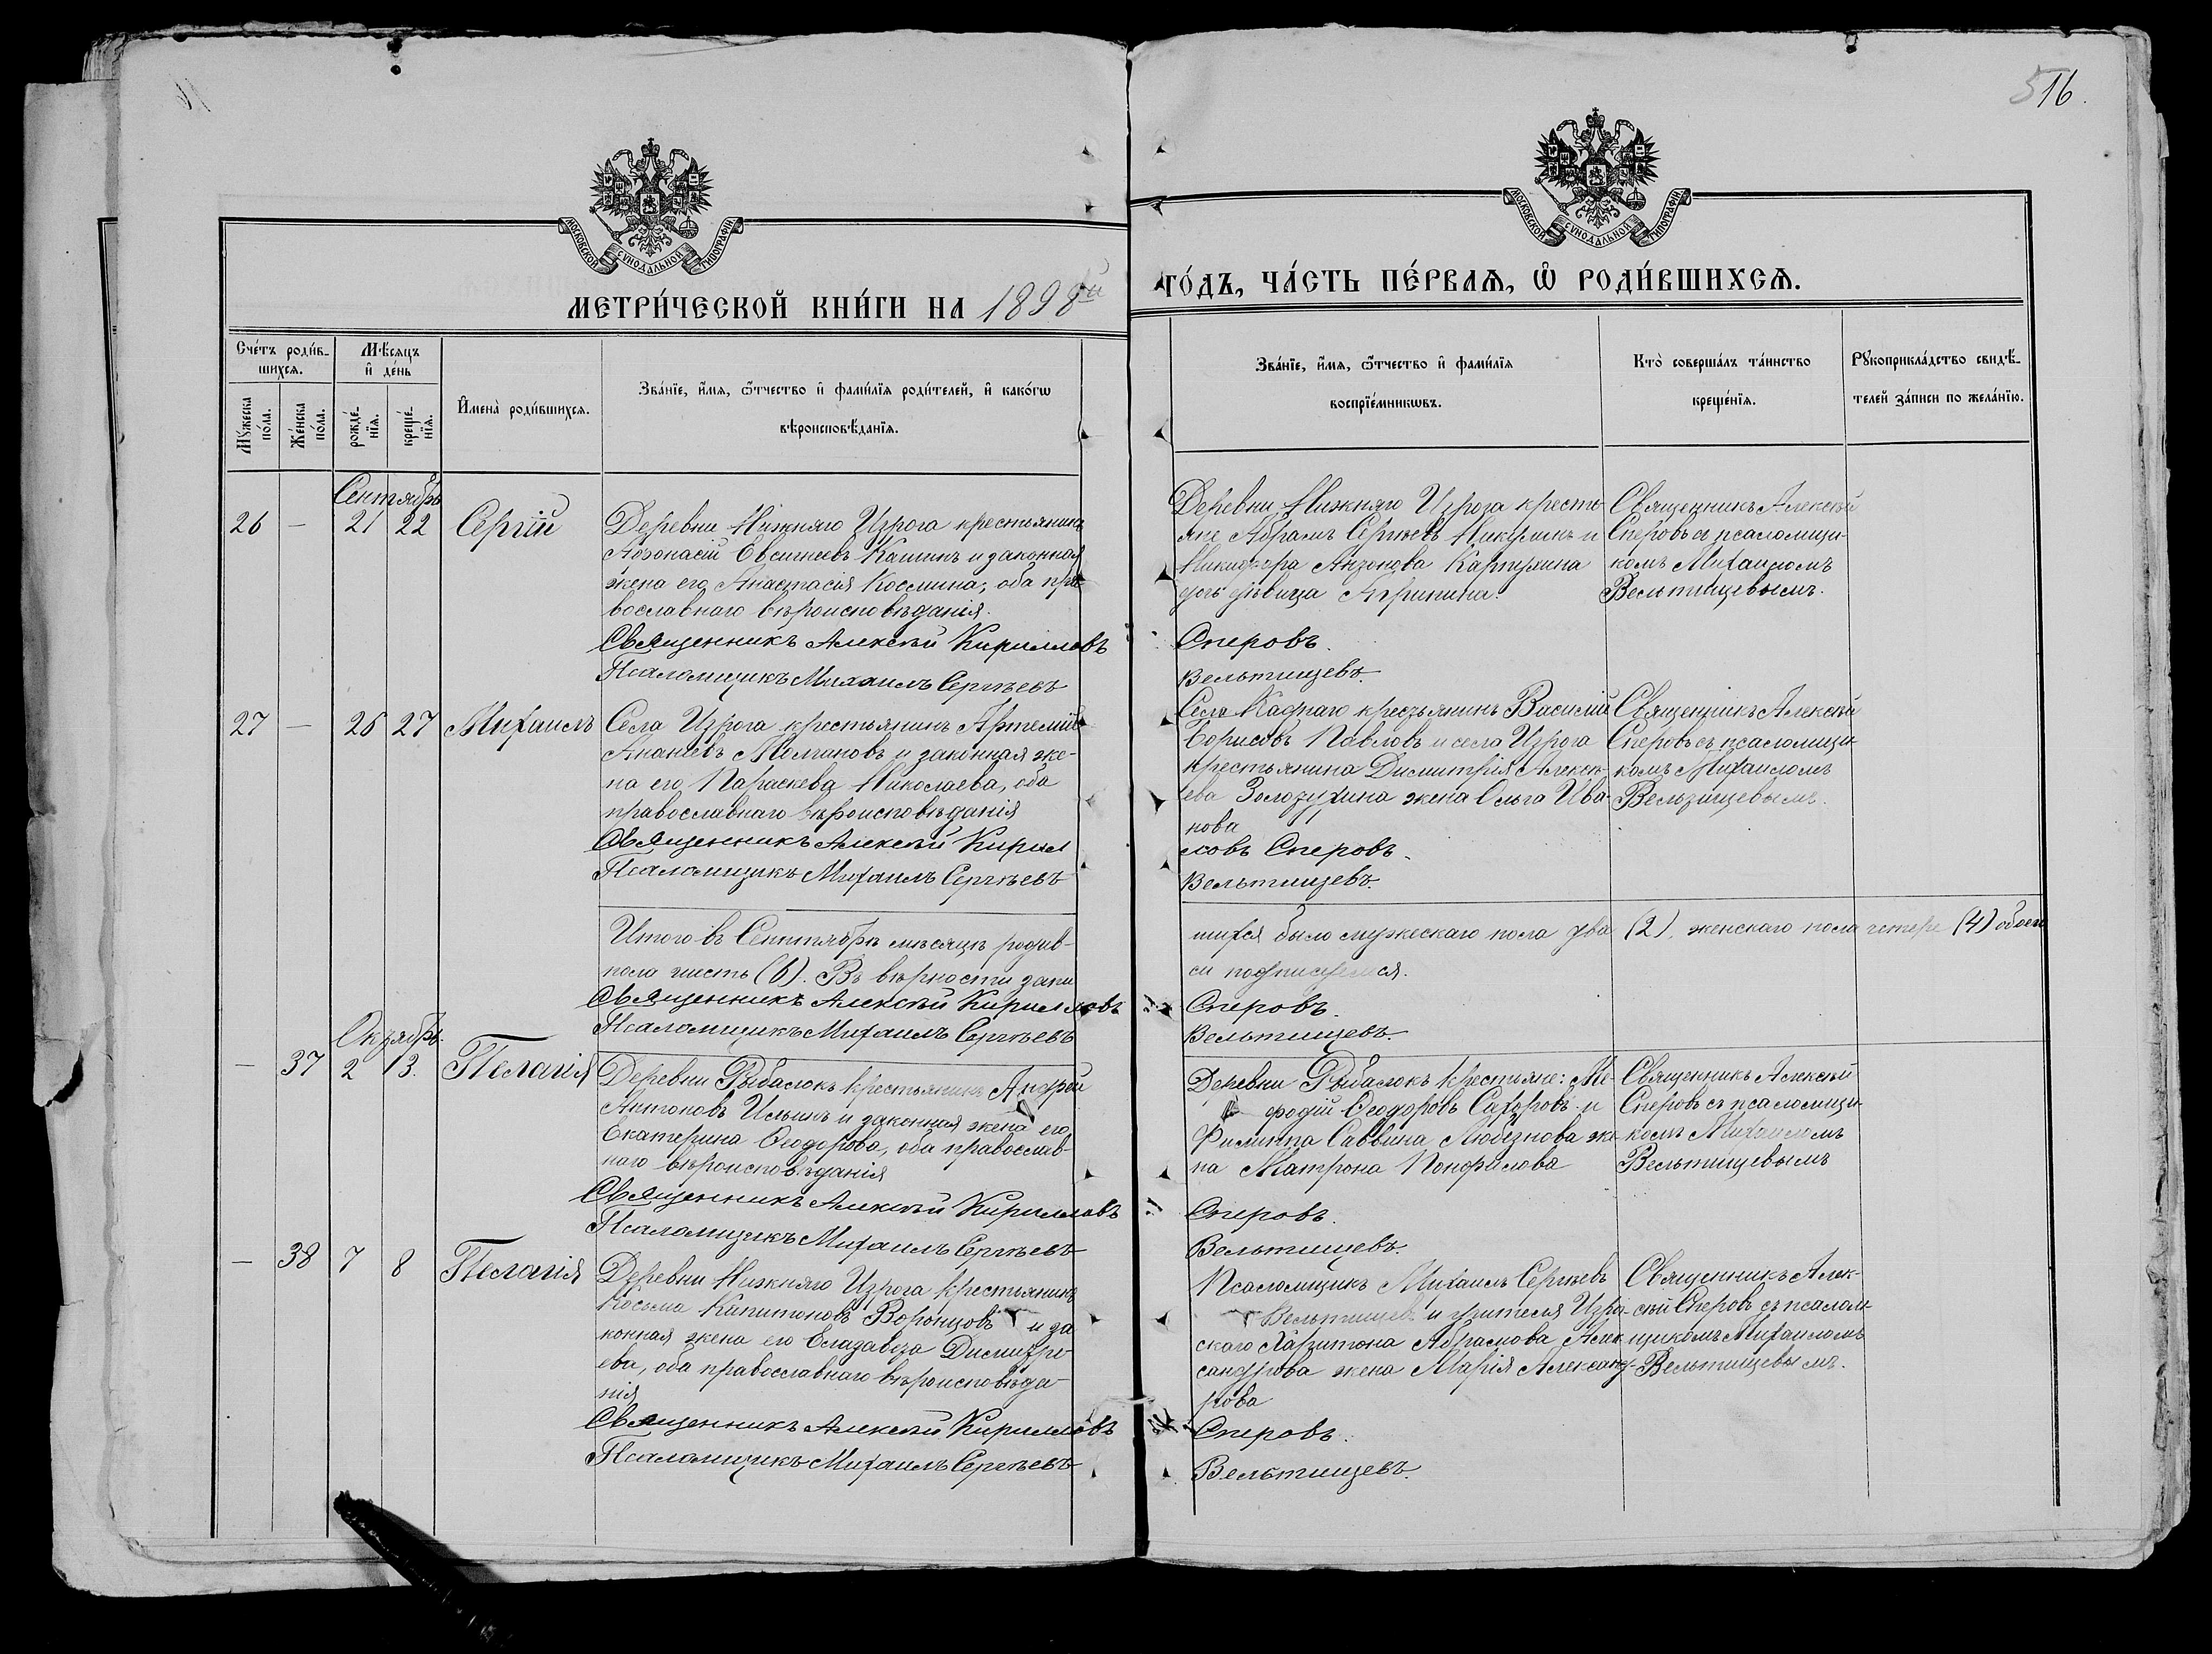 516.
МОСКОВСКОЙ СУНОДАЛЬНОЙ ТИПОГРАФІИ
МОСКОВСКОЙ СУНОДАЛЬНОЙ ТИПОГРАФІИ
МЕТРИ́ЧЕСКОЙ КНИ́ГИ НА 1898й
ГО́ДЪ, ЧА́СТЬ ПЕ́РВАѦ, Ѿ РОДИ́ВШИХСѦ.
Сче́тъ роди́в-
шихсѧ.
Мѣ́сѧцъ
и҆ де́нь
Мꙋ́жеска
по́ла.
Же́нска
по́ла.
рожде́-
нїѧ.
креще́-
нїѧ.
И҆мена̀ роди́вшихсѧ.
Зва́нїе, и҆́мѧ, ѻ҆́тчество и҆ фами́лїѧ роди́телей, и҆ како́гѡ
вѣроисповѣ́данїѧ.
Зва́нїе, и҆́мѧ, ѻ҆́тчество и҆ фами́лїѧ
воспрїе́мникѡвъ.
Кто̀ соверша́лъ та́инство
креще́нїѧ.
Рꙋкоприкла́дство свидѣ́-
телей за́писи по жела́нїю.
Сентябрь
26 — 21 22 Сергій
Деревни Нижняго Изрога крестьянинъ
Афонасій Евсигнеевъ Кашинъ и законная
жена его Анастасія Космина, оба пра
вославнаго вѣроисповѣданія.
Священникъ Алексѣй Кирилловъ
Псаломщикъ Михаилъ Сергѣевъ
Деревни Нижняго Изрога кресть
яне Абрамъ Сергѣевъ Никулинъ и
Никифора Карпухина
дочь дѣвица Агрипина.
Сперовъ.
Вельтищевъ.
Священникъ Алексѣй
Сперовъ съ псаломщи-
комъ Михаиломъ
Вельтищевымъ.
27 — 26 27 Михаилъ
Села Изрога крестьянинъ Артемій
Ананіевъ Молчановъ и законная же-
на его Параскева Николаева, оба
православнаго вѣроисповѣданія
Священникъ Алексѣй Кирил
Псаломщикъ Михаилъ Сергѣевъ
Села крестьянинъ Василій
Борисовъ Павловъ и села Изрога
крестьянина Димитрія Алексѣ-
ева Золотухина жена Ольга Ива-
нова
ловъ Сперовъ.
Вельтищевъ.
Священникъ Алексѣй
Сперовъ съ псаломщи-
комъ Михаиломъ
Вельтищевымъ.
Итого въ Сентябрѣ мѣсяцѣ родив-
шихся было мужескаго пола два (2), женскаго пола четыре (4) обоего
пола шесть (6). Въ вѣрности запи
си подписуемся.
Священникъ Алексѣй Кирилловъ
Сперовъ.
Псаломщикъ Михаилъ Сергѣевъ
Вельтищевъ.
Октябрь.
— 37 2 3. Пелагія
Деревни Рыбалокъ крестьянинъ Андрей
Антоновъ Ильинъ и законная жена его
Екатерина Ѳеодорова, оба православ-
наго вѣроисповѣданія
Священникъ Алексѣй Кирилловъ
Псаломщикъ Михаилъ Сергѣевъ
Деревни Рыбалокъ крестьяне: Ме-
фодій Ѳеодоровъ Сахаровъ и
Филиппа Саввина Любезнова же-
на Матрона
Сперовъ.
Вельтищевъ.
Священникъ Алексѣй
Сперовъ съ псаломщи-
комъ Михаиломъ
Вельтищевымъ
— 38 7 8 Пелагія
Деревни Нижняго Изрога крестьянинъ
Косьма Капитоновъ Воронцовъ и за
конная жена его Елизавета Димитрі-
ева, оба православнаго вѣроисповѣда-
нія
Священникъ Алексѣй Кирилловъ
Псаломщикъ Михаилъ Сергѣевъ
Псаломщикъ Михаилъ Сергѣевъ
Вельтищевъ и учителя Изро-
скаго Харитона Абрамова Алек
сандрова жена Марія Александ-
рова
Сперовъ.
Вельтищевъ.
Священникъ Алек-
сѣй Сперовъ съ псалом-
щикомъ Михаиломъ
Вельтищевымъ.